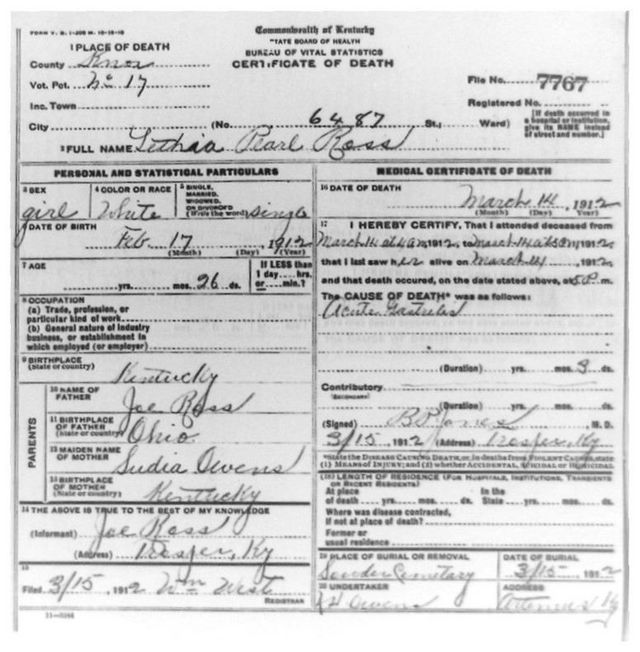 FORM V. S. 1-20S M. 10-16-10
Commonwealth of Kentucky
STATE BOARD OF HEALTH
BUREAU OF VITAL STATISTICS
CERTIFICATE OF DEATH
1 PLACE OF DEATH
County Knox
Vot. Pct. No 17
Inc. Town
City
(No. 6487 St.; Ward)
File No. 7767
Registered No.
[If death occurred in a hospital or institution, give its NAME instead of street and number.]
2 FULL NAME Lethia Pearl Ross
PERSONAL AND STATISTICAL PARTICULARS
3 SEX
girl
4 COLOR OR RACE
White
5 SINGLE, MARRIED, WIDOWED, OR DIVORCED (Write the word)
single
6 DATE OF BIRTH
Feb 17 1912
(Month) (Day) (Year)
7 AGE
yrs. mos. 26 ds.
If LESS than 1 day....hrs. or....min.?
8 OCCUPATION
(a) Trade, profession, or particular kind of work
(b) General nature of industry business, or establishment in which employed (or employer)
9 BIRTHPLACE
(State or country)
Kentucky
PARENTS
10 NAME OF FATHER
Joe Ross
11 BIRTHPLACE OF FATHER
(State or country)
Ohio
12 MAIDEN NAME OF MOTHER
Sudia Owens
13 BIRTHPLACE OF MOTHER
(State or country)
Kentucky
14 THE ABOVE IS TRUE TO THE BEST OF MY KNOWLEDGE
(Informant) Joe Ross
(Address) Ky
15
Filed 3/15, 1912 Wm West
REGISTRAR
11-3284
MEDICAL CERTIFICATE OF DEATH
16 DATE OF DEATH
March 14, 1912
(Month) (Day) (Year)
17 I HEREBY CERTIFY, That I attended deceased from
March 14 at 1912, to March 14 at 1912
that I last saw her alive on March 14 1912
and that death occured, on the date stated above, at 5 P m.
The CAUSE OF DEATH* was as follows:
Acute Gastritis
(Duration) yrs. mos. 3 ds.
Contributory
(SECONDARY)
(Duration) yrs. mos. ds.
(Signed) B P Jones M. D.
3/15 1912 (Address) Ky
*State the DISEASE CAUSING DEATH, or, in deaths from VIOLENT CAUSES, state (1) MEANS OF INJURY; and (2) whether ACCIDENTAL, SUICIDAL or HOMICIDAL
(18) LENGTH OF RESIDENCE (FOR HOSPITALS, INSTITUTIONS, TRANSIENTS OR RECENT RESIDENTS)
At place of death yrs. mos. ds.
In the State yrs. mos. ds.
Where was disease contracted, if not at place of death?
Former or usual residence
19 PLACE OF BURIAL OR REMOVAL
Cemetary
DATE OF BURIAL
3/15 1912
20 UNDERTAKER
Owens
Artemus Ky